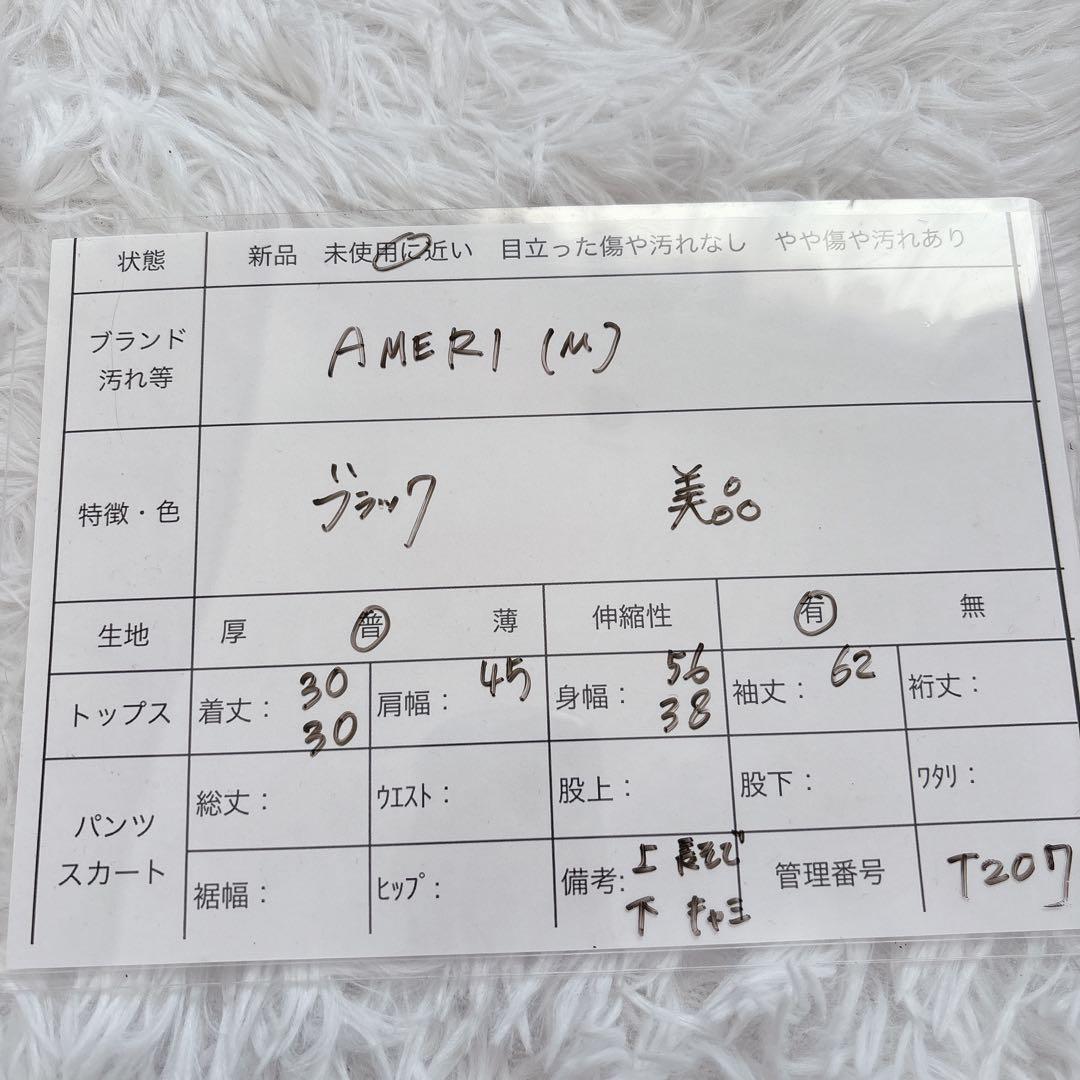 状態 新品 未使用に近い 目立った傷や汚れなし やや傷や汚れあり
ブランド
汚れ等
AMERI (M)
特徴・色 ブラック 美品
生地 厚 普 薄 伸縮性 有 無
トップス 着丈: 30 肩幅: 45 身幅: 56 袖丈: 62 裄丈:
30 38
パンツ
スカート
総丈: ｳｴｽﾄ: 股上: 股下: ﾜﾀﾘ:
裾幅: ﾋｯﾌﾟ: 備考: 上 長そで 管理番号 T207
下 キャミ